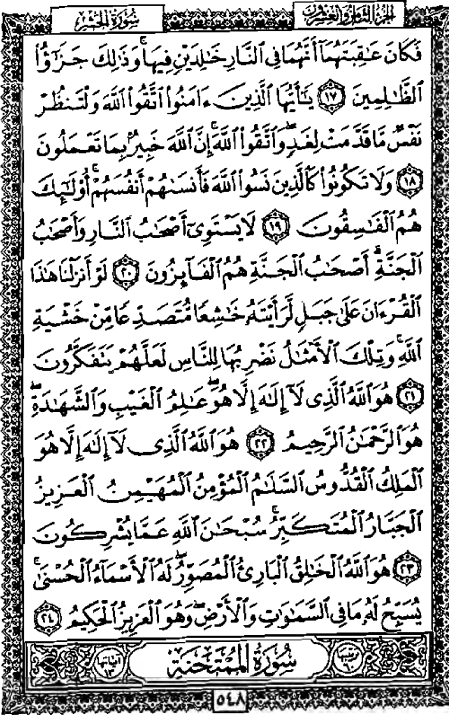 الجزء الثامن والعشرون سورة الحشر
فَكَانَ عَٰقِبَتَهُمَآ أَنَّهُمَا فِي ٱلنَّارِ خَٰلِدَيۡنِ فِيهَاۚ وَذَٰلِكَ جَزَٰٓؤُاْ
ٱلظَّٰلِمِينَ ١٧ يَٰٓأَيُّهَا ٱلَّذِينَ ءَامَنُواْ ٱتَّقُواْ ٱللَّهَ وَلۡتَنظُرۡ
نَفۡسٞ مَّا قَدَّمَتۡ لِغَدٖۖ وَٱتَّقُواْ ٱللَّهَۚ إِنَّ ٱللَّهَ خَبِيرُۢ بِمَا تَعۡمَلُونَ
١٨ وَلَا تَكُونُواْ كَٱلَّذِينَ نَسُواْ ٱللَّهَ فَأَنسَىٰهُمۡ أَنفُسَهُمۡۚ أُوْلَٰٓئِكَ
هُمُ ٱلۡفَٰسِقُونَ ١٩ لَا يَسۡتَوِيٓ أَصۡحَٰبُ ٱلنَّارِ وَأَصۡحَٰبُ
ٱلۡجَنَّةِۚ أَصۡحَٰبُ ٱلۡجَنَّةِ هُمُ ٱلۡفَآئِزُونَ ٢٠ لَوۡ أَنزَلۡنَا هَٰذَا
ٱلۡقُرۡءَانَ عَلَىٰ جَبَلٖ لَّرَأَيۡتَهُۥ خَٰشِعٗا مُّتَصَدِّعٗا مِّنۡ خَشۡيَةِ
ٱللَّهِۚ وَتِلۡكَ ٱلۡأَمۡثَٰلُ نَضۡرِبُهَا لِلنَّاسِ لَعَلَّهُمۡ يَتَفَكَّرُونَ
٢١ هُوَ ٱللَّهُ ٱلَّذِي لَآ إِلَٰهَ إِلَّا هُوَۖ عَٰلِمُ ٱلۡغَيۡبِ وَٱلشَّهَٰدَةِۖ
هُوَ ٱلرَّحۡمَٰنُ ٱلرَّحِيمُ ٢٢ هُوَ ٱللَّهُ ٱلَّذِي لَآ إِلَٰهَ إِلَّا هُوَ
ٱلۡمَلِكُ ٱلۡقُدُّوسُ ٱلسَّلَٰمُ ٱلۡمُؤۡمِنُ ٱلۡمُهَيۡمِنُ ٱلۡعَزِيزُ
ٱلۡجَبَّارُ ٱلۡمُتَكَبِّرُۚ سُبۡحَٰنَ ٱللَّهِ عَمَّا يُشۡرِكُونَ
٢٣ هُوَ ٱللَّهُ ٱلۡخَٰلِقُ ٱلۡبَارِئُ ٱلۡمُصَوِّرُۖ لَهُ ٱلۡأَسۡمَآءُ ٱلۡحُسۡنَىٰۚ
يُسَبِّحُ لَهُۥ مَا فِي ٱلسَّمَٰوَٰتِ وَٱلۡأَرۡضِۖ وَهُوَ ٱلۡعَزِيزُ ٱلۡحَكِيمُ ٢٤
سُورَةُ المُمْتَحنَة آياتها ١٣
٥٤٨